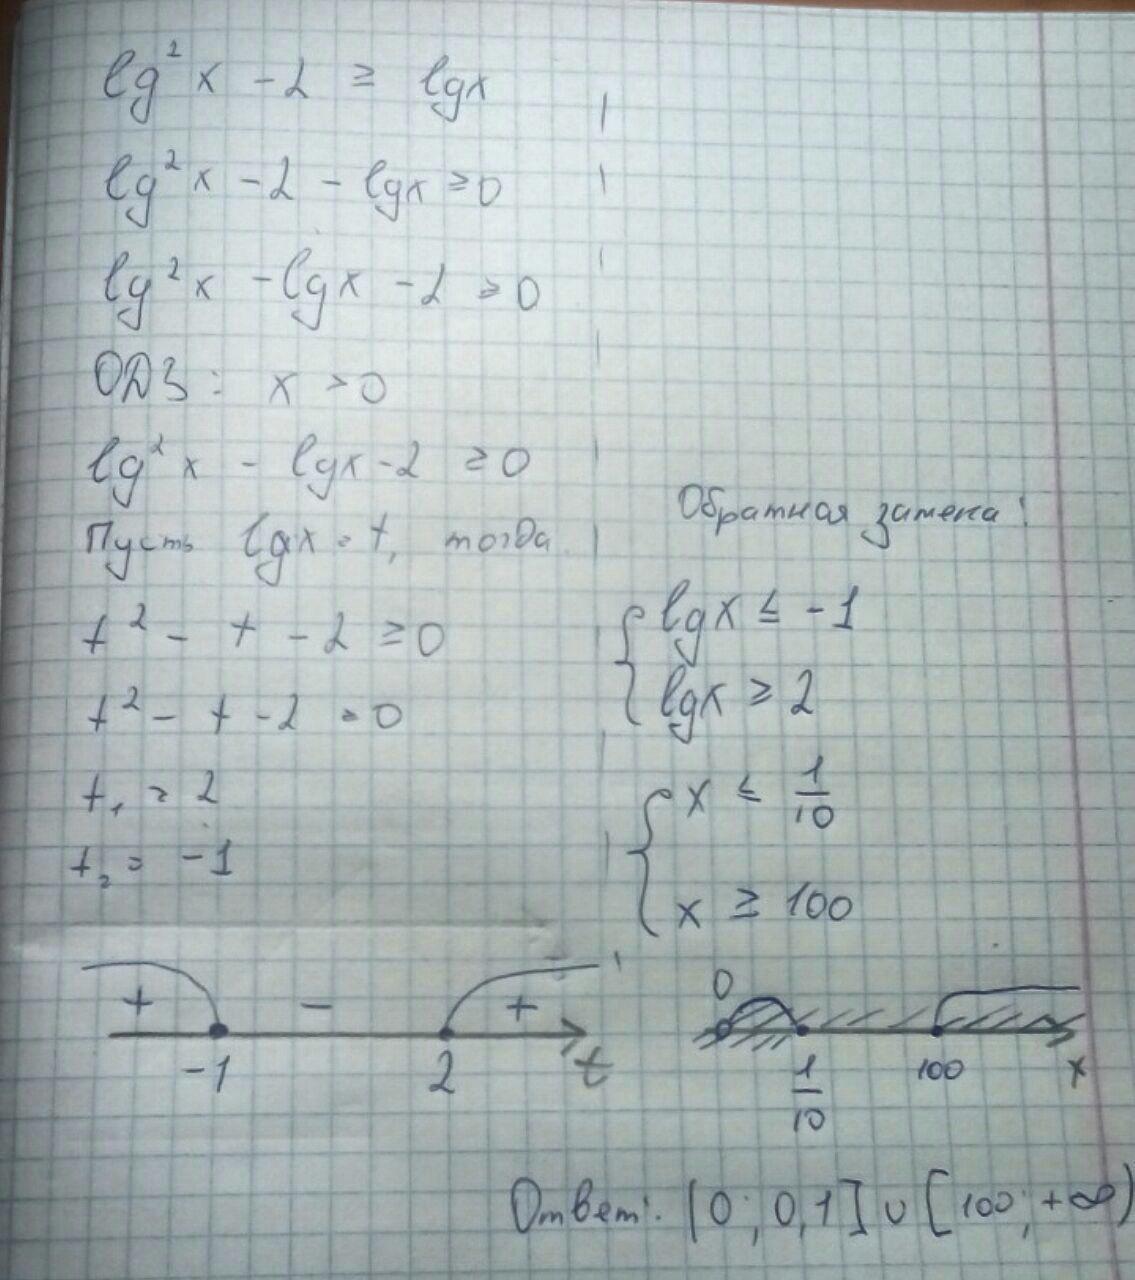 lg²x - 2 ≥ lgx
lg²x - 2 - lgx ≥ 0
lg²x - lgx - 2 ≥ 0
ОДЗ: x > 0
lg²x - lgx - 2 ≥ 0
Пусть lgx = t, тогда
t² - t - 2 ≥ 0
t² - t - 2 = 0
t₁ = 2
t₂ = -1
+ - +
-1 2 t
Обратная замена:
{ lgx ≤ -1
lgx ≥ 2
{ x ≤ 1/10
x ≥ 100
0
1/10 100 x
Ответ: [0; 0,1] ∪ [100; +∞)